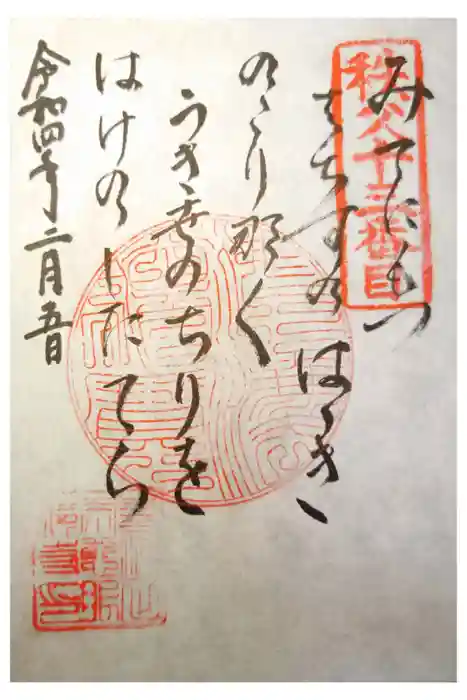 秩父十三番目
みてにもつ
はちすのはゝき
のこり那く
うき世のちりを
はけのしたてら
令和四年二月五日